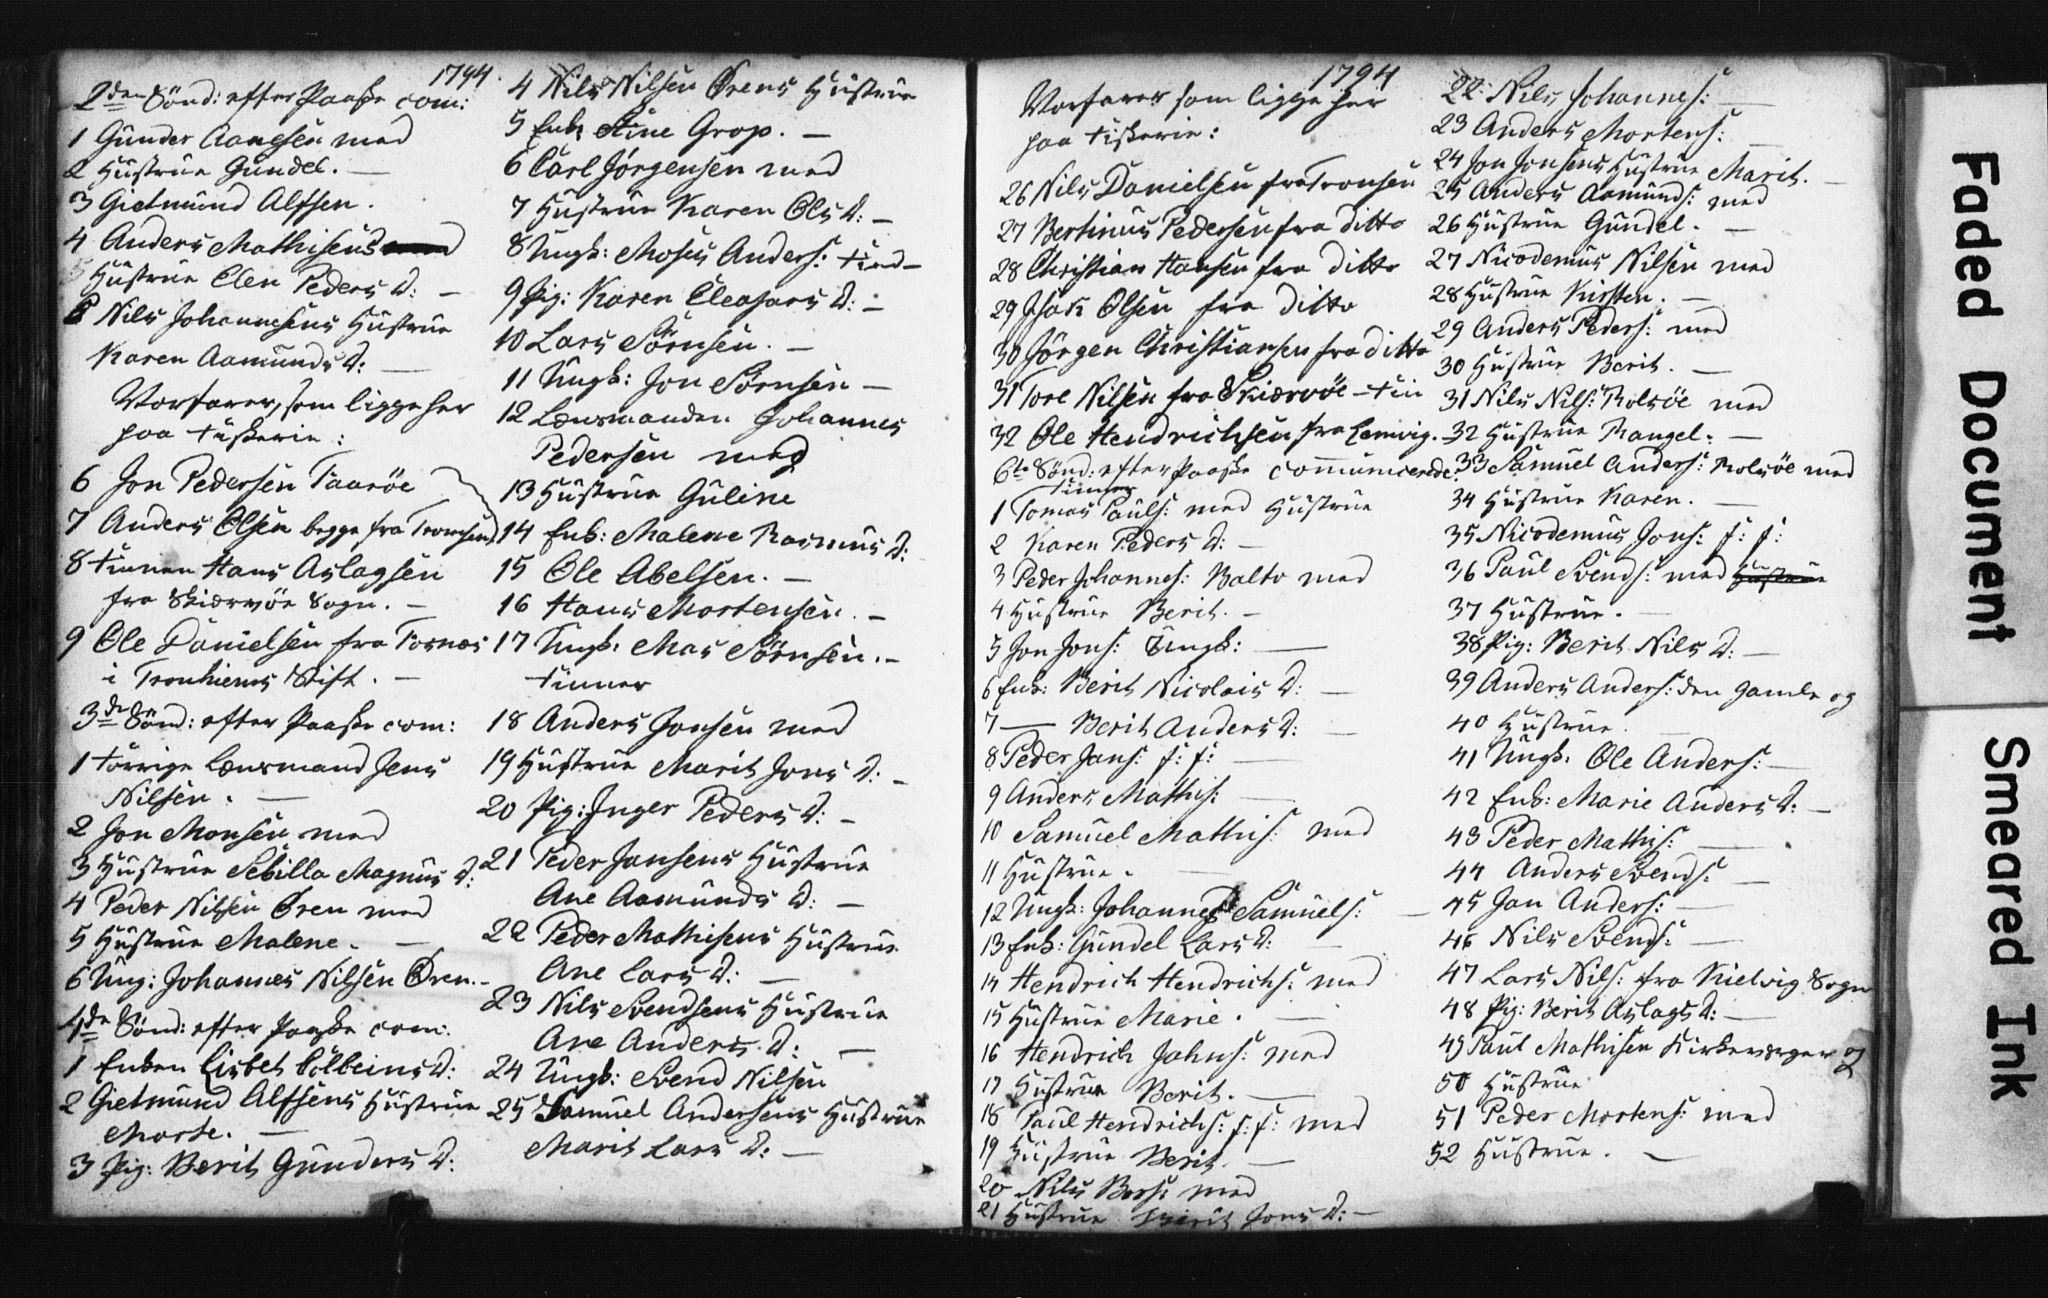 1794.
2den Sönd: efter Paaske com:
1 Gunder Aanesen med
2 Hustrue Gundel. —
3 Gietmund Alfsen.
4 Anders Mathisens
Hustrue Elen Peders D: —
Nils Johannesens Hustrue
Karen Aamunds D: —
Vorfarer, som ligge her
paa fiskerie:
6 Jon Pedersen Taaröe
7 Anders Olsen begge fra Tromsen
8 finnen Hans Aslagsen
fra Skiærvöe Sogn. —
9 Ole Danielsen fra
i Tronhiems Stift. —
3de Sönd: efter Paaske com:
1 förrige Lænsmand Jens
Nilsen. —
2 Jon Monsen med
3 Hustrue Sebilla Magnus D:
4 Peder Nilsen Ören med
5 Hustrue Malene. —
6 Ung: Johannes Nilsen Ören. -
4de Sönd: efter Paaske com:
1 Enken Lisbet D:
2 Gietmund Alfsens Hustrue
Marte. —
3 Pig: Berit Gunders D:
4 Nils Nilsen Örens Hustrue
5 Enk: Stine Grop. —
6 Carl Jörgensen med
7 Hustrue Karen Ols D: —
8 Ungk: Moses Anders:
9 Pig: Karen Eleasars D: —
10 Lars Sörnsen. —
11 Ungk: Jon Sörnsen —
12 Lænsmanden Johannes
Pedersen med
13 Hustrue Guline
14 Enk: Malene Rasmus D:
15 Ole Abelsen. —
16 Hans Mortensen. —
17 Ungk: Mas Sörnsen. —
finner
18 Anders Jonsen med
19 Hustrue Marit Jons D: —
20 Pig: Inger Peders D: —
21 Peder Jansens Hustrue
Ane Aamunds D: —
22 Peder Mathisens Hustrue
Ane Lars D: —
23 Nils Svendsens Hustrue
Ane Anders D: —
24 Ungk: Svend Nilsen
25 Samuel Andersens Hustrue
Marit Lars D: —
1794
Vorfarer som ligge her
paa fiskerie:
26 Nils Danielsen fra Tromsen
27 Bertinus Pedersen fra ditto
28 Christian Hansen fra ditto
29 Isak Olsen fra ditto
30 Jörgen Christiansen fra ditto
31 Tore Nilsen fra Skiærvöe - fin
32 Ole Hendrichsen fra Lenvig. —
6te Sönd: efter Paaske communicerede
finner
1 Tomas Pauls: med Hustrue
2 Karen Peders D: —
3 Peder Johannes: Balto med
4 Hustrue Berit. —
5 Jon Jons: Ungk: —
6 Enk: Berit Nicolais D: —
7 — Berit Anders D: —
8 Peder Jans: f: f: —
9 Anders Mathis: —
10 Samuel Mathis: med
11 Hustrue. —
12 Ungk: Johannes Samuels: —
13 Enk: Gundel Lars D: —
14 Hendrich Hendrichs: med
15 Hustrue Marie. —
16 Hendrich Johns: med
17 Hustrue Berit. —
18 Paul Hendrichs: f: f: med
19 Hustrue Berit. —
20 Nils med
21 Hustrue Jons D: —
22: Nils Johannes: —
23 Anders Mortens: —
24 Jon Jonsens Hustrue Marit. —
25 Anders Aamunds: med
26 Hustrue Gundel. —
27 Nicodemus Nilsen med
28 Hustrue Kirsten. —
29 Anders Peders: med
30 Hustrue Berit. —
31 Nils Nils: Rolsöe med
32 Hustrue Rangel. —
33 Samuel Anders: Rolsöe med
34 Hustrue Karen. —
35 Nicodemus Jons: f: f:
36 Paul Svends: med Hustrue
37 Hustrue. —
38 Pig: Berit Nils D: —
39 Anders Anders: den gamle og
40 Hustrue. —
41 Ungk: Ole Anders: —
42 Enk: Marie Anders D: —
43 Peder Mathis: —
44 Anders Svends: —
45 Jan Anders: —
46 Nils Svends: —
47 Lars Nils: fra Kielvig Sogn
48 Pig: Berit Aslags D: —
49 Paul Mathisen Kirkeværger og
50 Hustrue
51 Peder Mortens: med
52 Hustrue. —
Faded Document
Smeared Ink